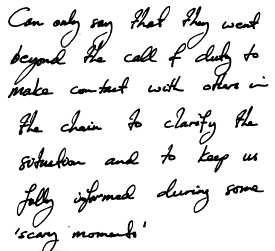 Can only say that they went
beyond the call of duty to
make contact with others in
the chain to clarify the
situation and to keep us
fully informed during some
'scary moments'